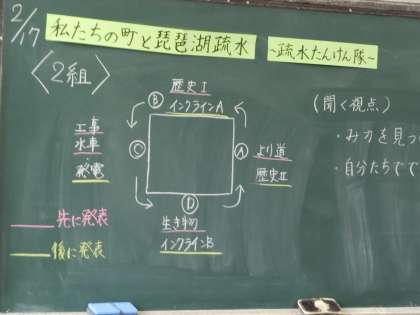 2/17
私たちの町と琵琶湖疏水
〜疏水たんけん隊〜
〈2組〉
歴史Ⅰ
Ⓑ インクラインA
工事
水車
・発電
Ⓒ
Ⓐ
より道
歴史Ⅱ
Ⓓ
生き物
インクラインB
先に発表
後に発表
(聞く視点)
・みりを見つ
・自分たちで